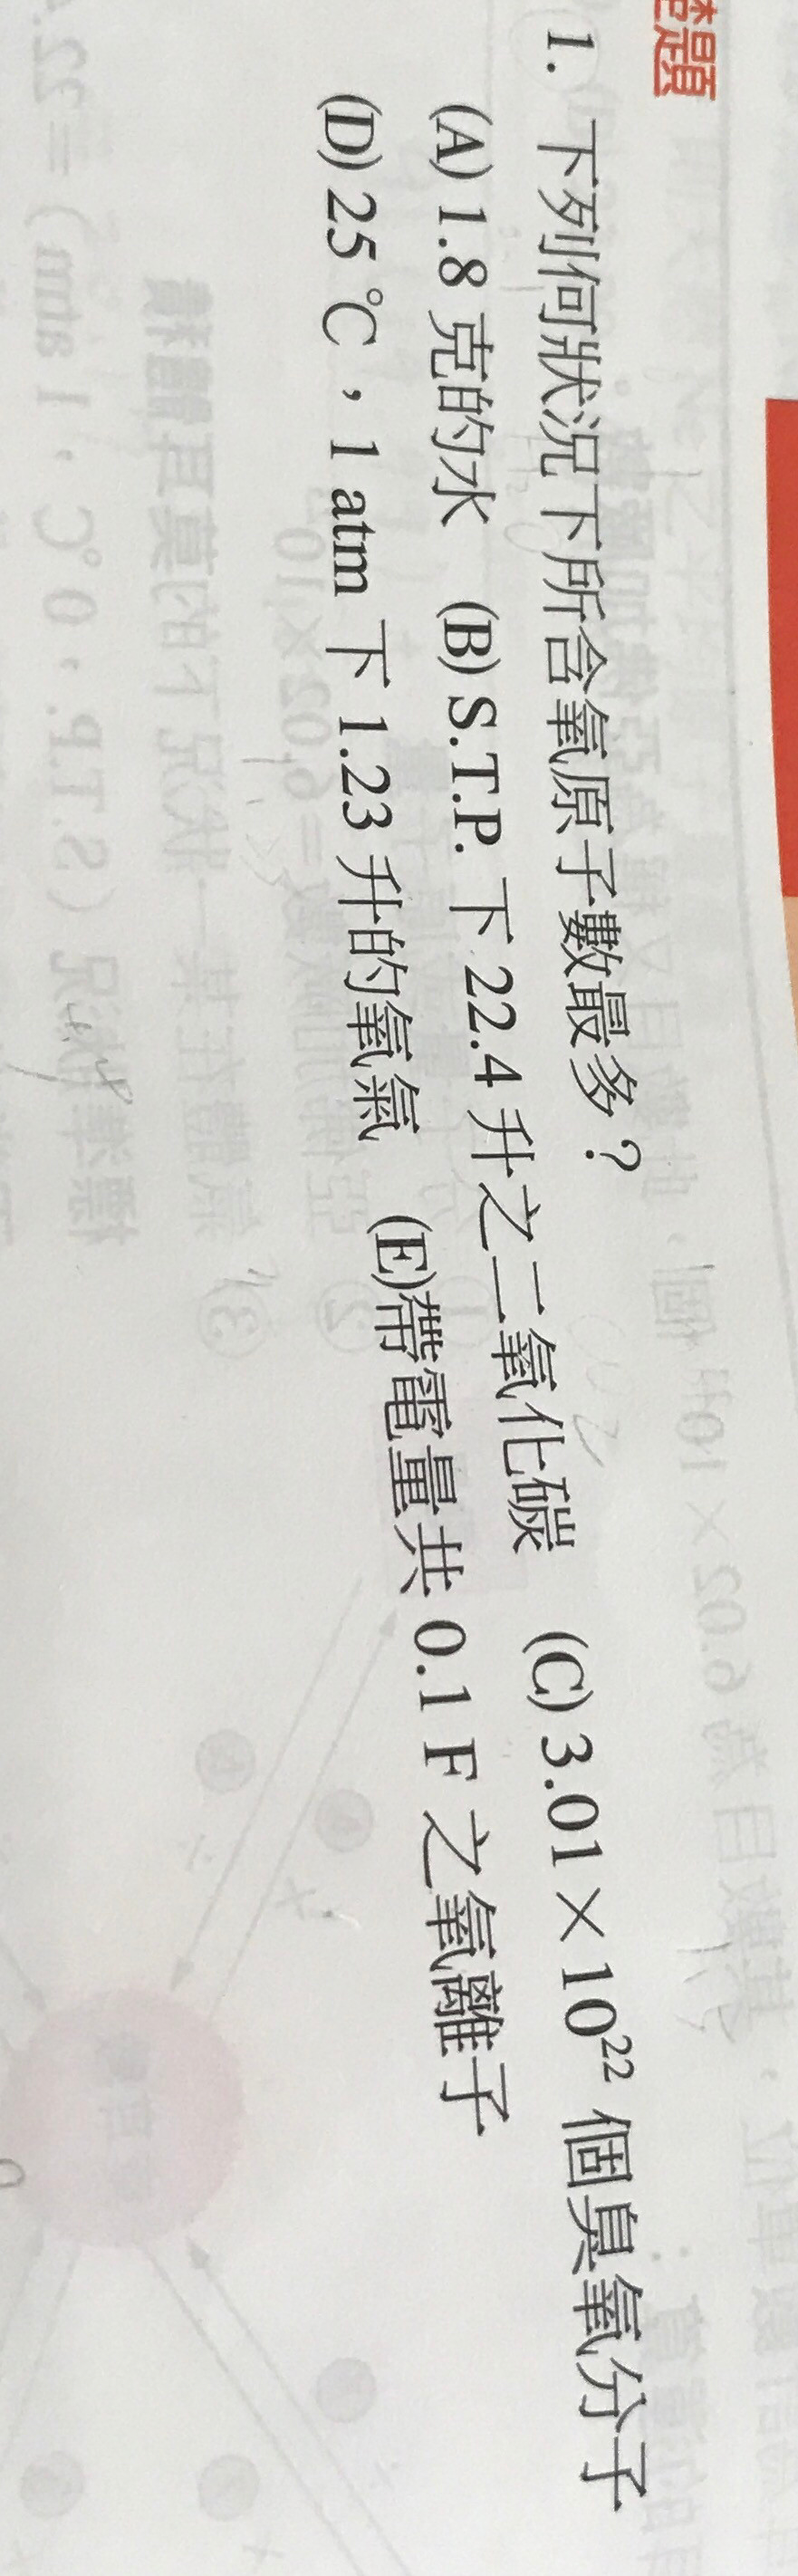 題
1. 下列何狀況下所含氧原子數最多？
(A) 1.8 克的水　(B) S.T.P. 下 22.4 升之二氧化碳　(C) 3.01×10²² 個臭氧分子
(D) 25 ℃，1 atm 下 1.23 升的氧氣　(E)帶電量共 0.1 F 之氧離子